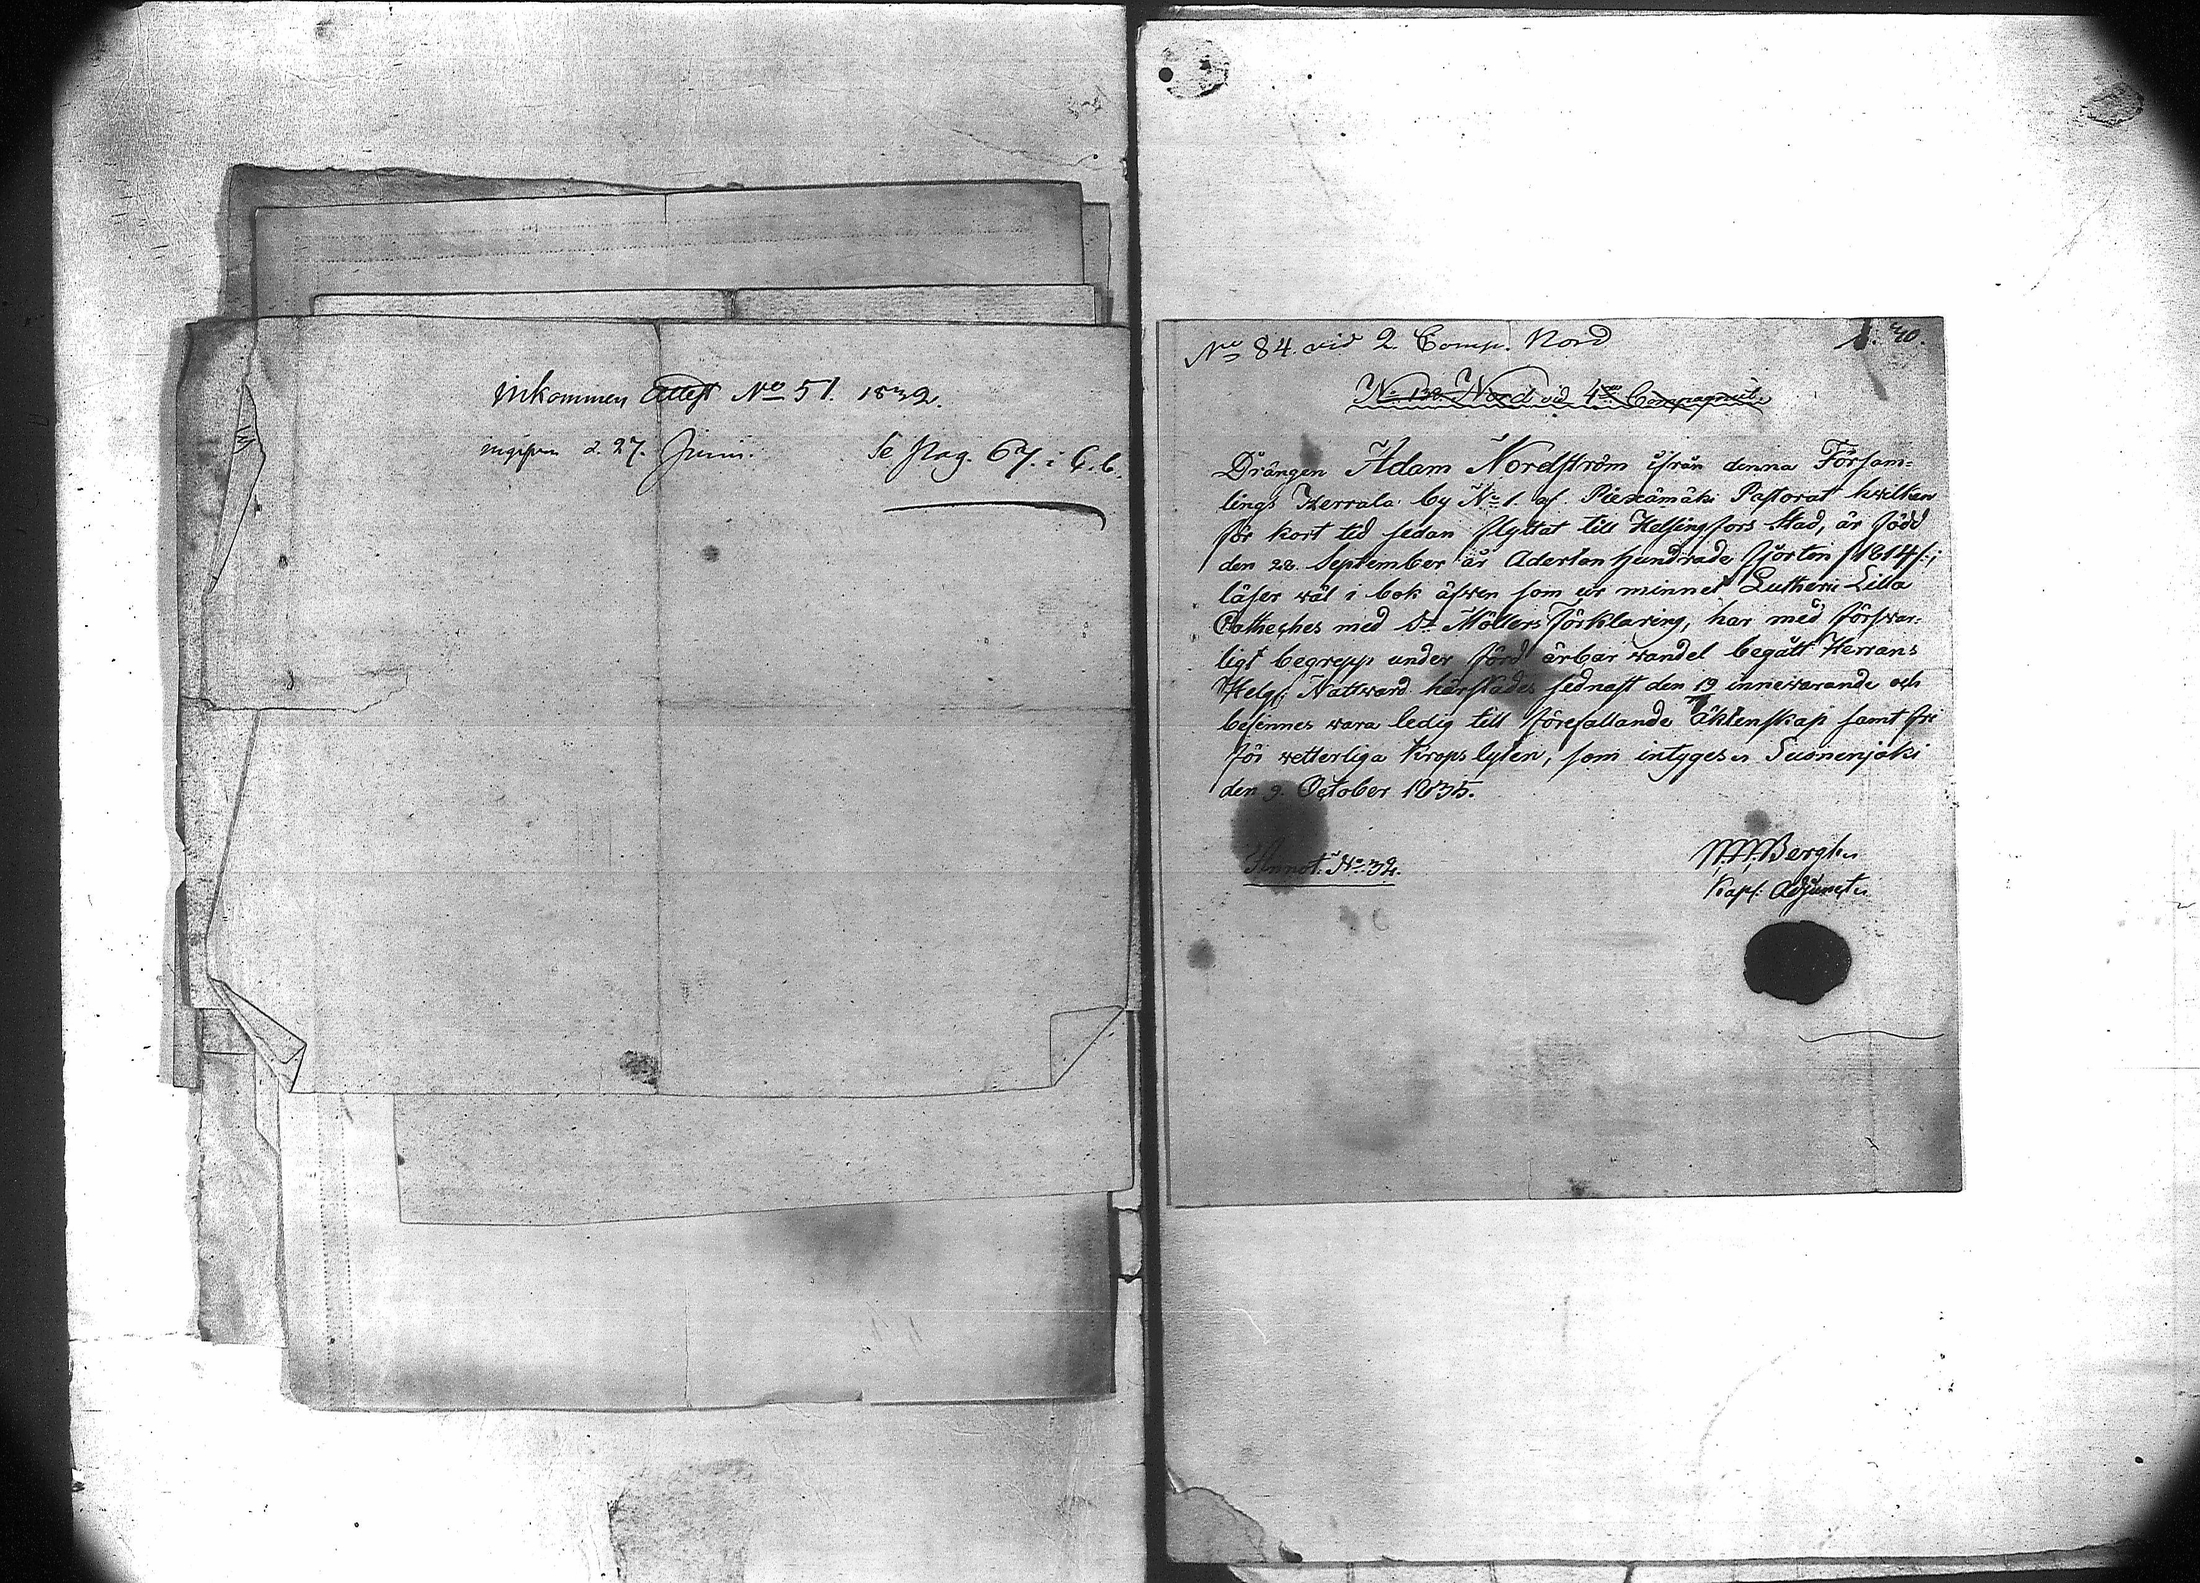 inkommen Attest No 51. 1832.
ingifven d. 27. Junii. Se Pag. 67. i C. b.
No 84. vid 2. Comp. Nord
1. 40.
No 138. Nord vid 4de Compagniet.
Drängen Adam Nordström ifrån denna Församlings
lings Kerrala by No 1. af Piexämäki Pastorat hvilken
för kort tid sedan flyttat till Helsingfors Stad, är född
den 28. September år Adertonhundrade fjorton /1814/:;
läser wäl i bok äfwen som ur minnet Lutheri Lilla
Catheches med Dr Möllers Förklaring, har med förswar-
ligt begrepp under förd ärbar wandel begått Herrans
Helg: Nattward härstädes sednast den 19 innewarande och
befinnes wara ledig till förefallande äktenskap samt fri
för wetterliga Kropslyten, som intygas Suonenjoki
den 9. October 1835.
Annot. No 32.
Bergh
Kapl. Adjunct